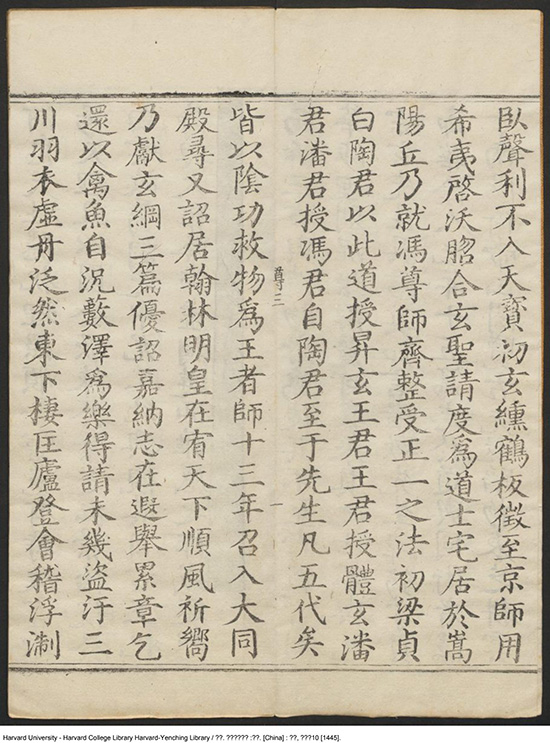 臥聲利不入天寶初玄纁鶴板徵至京師用
希夷啓沃脗合玄聖請度爲道士宅居於嵩
陽丘乃就馮尊師齊整受正一之法初梁貞
白陶君以此道授昇玄王君王君授體玄潘
君潘君授馮君自陶君至于先生凡五代矣
尊三 一
皆以陰功救物爲王者師十三年召入大同
殿尋又詔居翰林明皇在宥天下順風祈嚮
乃獻玄綱三篇優詔嘉納志在遐舉累章乞
還以禽魚自況藪澤爲樂得請未幾盜汙三
川羽衣虛舟泛然東下棲匡廬登會稽浮淛
Harvard University - Harvard College Library Harvard-Yenching Library / ??. ?????? :??. [China] : ??, ???10 [1445].